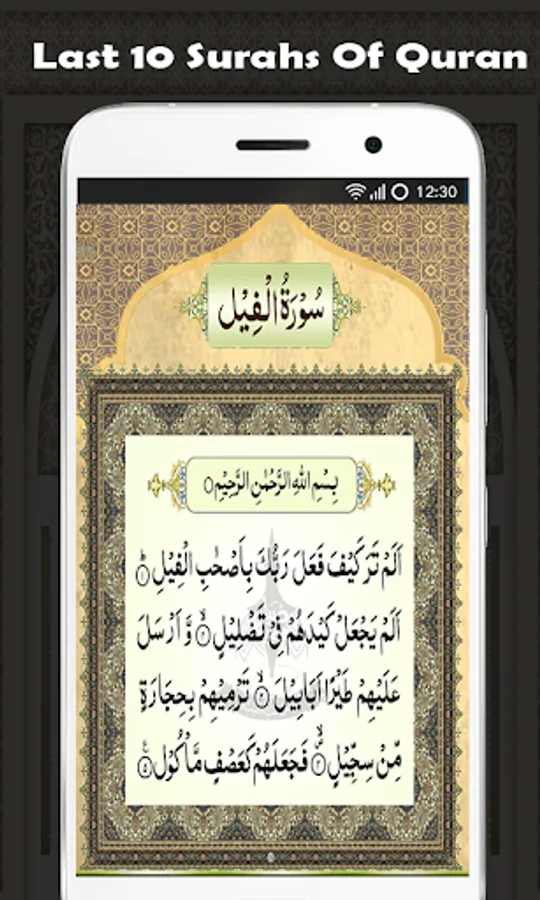 Last 10 Surahs Of Quran
12:30
سُوْرَةُ الْفِيْل
بِسْمِ اللهِ الرَّحْمٰنِ الرَّحِيْمِ ○
اَلَمْ تَرَ كَيْفَ فَعَلَ رَبُّكَ بِاَصْحٰبِ الْفِيْلِ ؕ﴿۱﴾
اَلَمْ يَجْعَلْ كَيْدَهُمْ فِيْ تَضْلِيْلٍ ۙ﴿۲﴾ وَّ اَرْسَلَ
عَلَيْهِمْ طَيْرًا اَبَابِيْلَ ۙ﴿۳﴾ تَرْمِيْهِمْ بِحِجَارَةٍ
مِّنْ سِجِّيْلٍ ۪ۙ﴿۴﴾ فَجَعَلَهُمْ كَعَصْفٍ مَّاْكُوْلٍ ﴿۵﴾